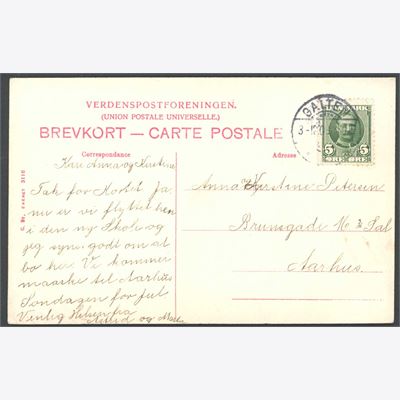 VERDENSPOSTFORENINGEN.
(UNION POSTALE UNIVERSELLE.)
BREVKORT — CARTE POSTALE
Correspondance
Adresse
Kære Anna og Kirstine
Tak for Kortet Ja,
nu er vi flyttet hen
i den ny Skole og
jeg syn. godt om at
bo her. Vi kommer
maaske til Aarhus
Søndagen for Jul
Venlig Hilsen fra
Astrid og
Anna og Kirstine Petersen
Brunsgade No 3 Sal
Aarhus.
GALTEN
DANMARK
5 5
ØRE ØRE